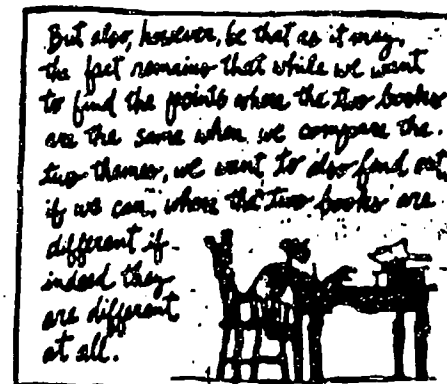 But also, however, be that as it may,
the fact remains that while we want
to find the points where the two books
are the same when we compare the
two themes, we want to also find out,
if we can, where the two books are
different if
indeed they
are different
at all.